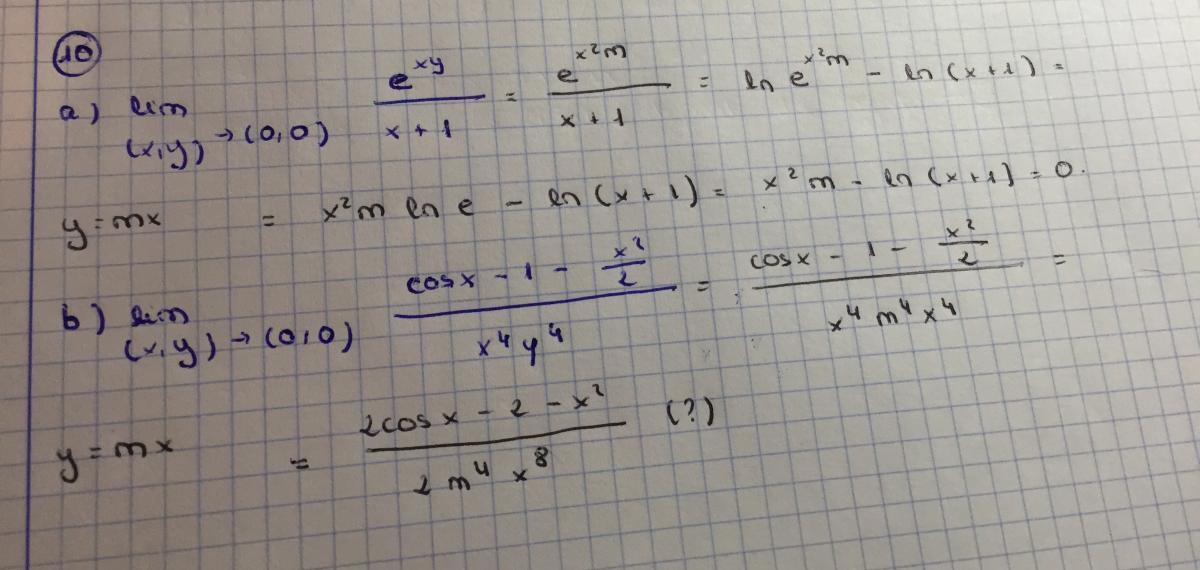 10
a) lim (x,y)→(0,0) e^(xy)/(x+1) = e^(x²m)/(x+1) = ln e^(x²m) - ln(x+1) =
y=mx = x²m ln e - ln(x+1) = x²m - ln(x+1) = 0.
b) lim (x,y)→(0,0) (cosx - 1 - x²/2)/(x⁴y⁴) = (cosx - 1 - x²/2)/(x⁴m⁴x⁴) =
y=mx = (2cosx - 2 - x²)/(2m⁴x⁸) (?)